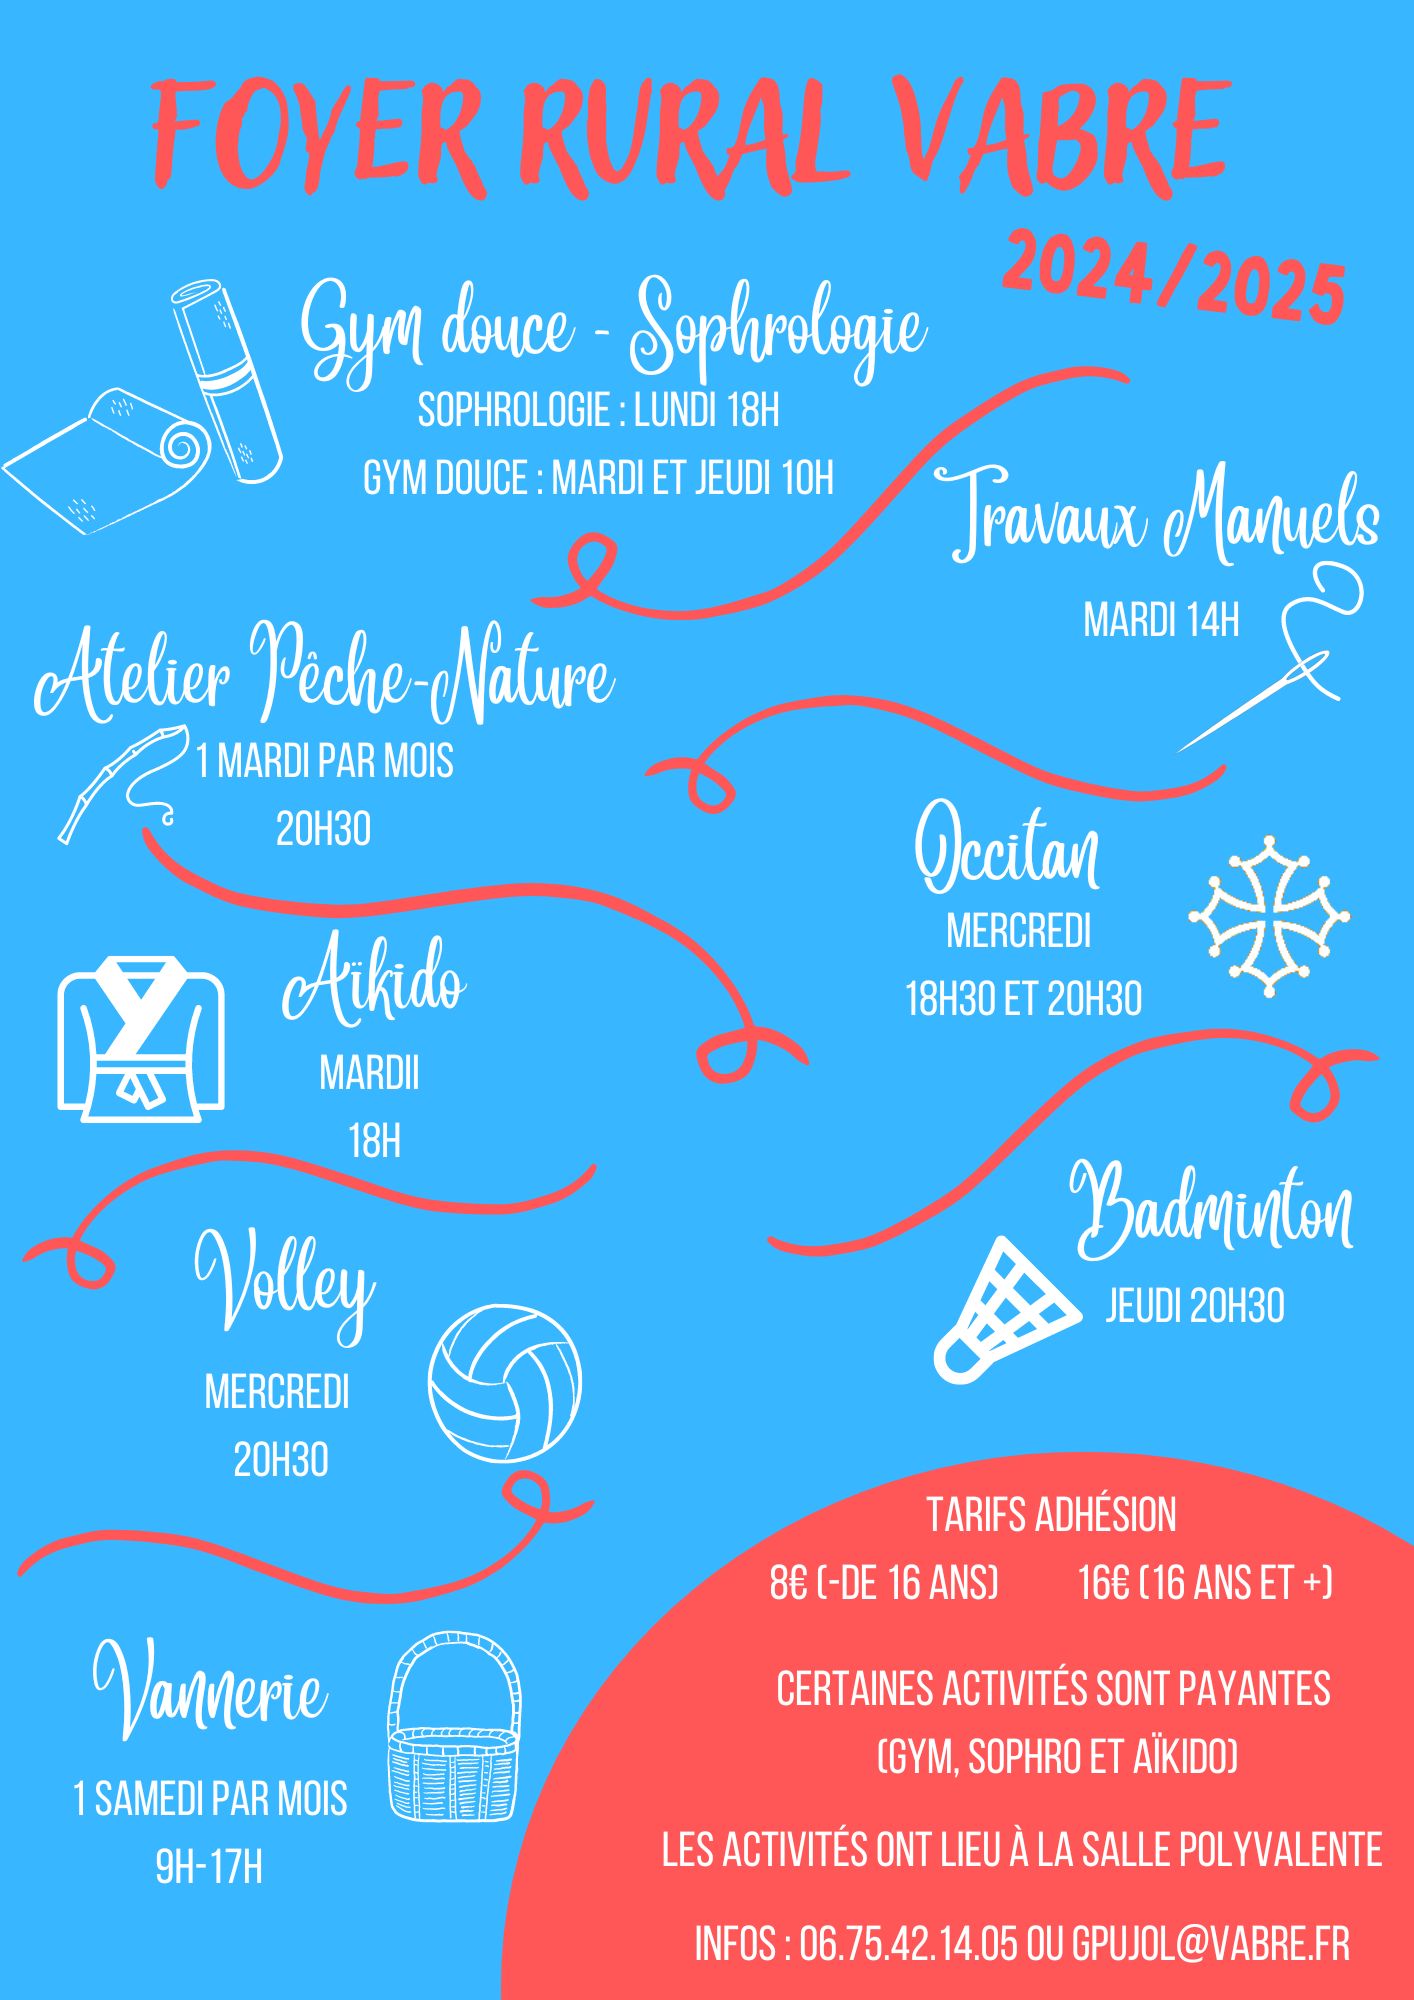 FOYER RURAL VABRE
2024/2025
Gym douce - Sophrologie
SOPHROLOGIE : LUNDI 18H
GYM DOUCE : MARDI ET JEUDI 10H
Travaux Manuels
MARDI 14H
Atelier Pêche-Nature
1 MARDI PAR MOIS
20H30
Occitan
MERCREDI
18H30 ET 20H30
Aïkido
MARDII
18H
Badminton
JEUDI 20H30
Volley
MERCREDI
20H30
Vannerie
1 SAMEDI PAR MOIS
9H-17H
TARIFS ADHÉSION
8€ (-DE 16 ANS) 16€ (16 ANS ET +)
CERTAINES ACTIVITÉS SONT PAYANTES
(GYM, SOPHRO ET AÏKIDO)
LES ACTIVITÉS ONT LIEU À LA SALLE POLYVALENTE
INFOS : 06.75.42.14.05 OU GPUJOL@VABRE.FR